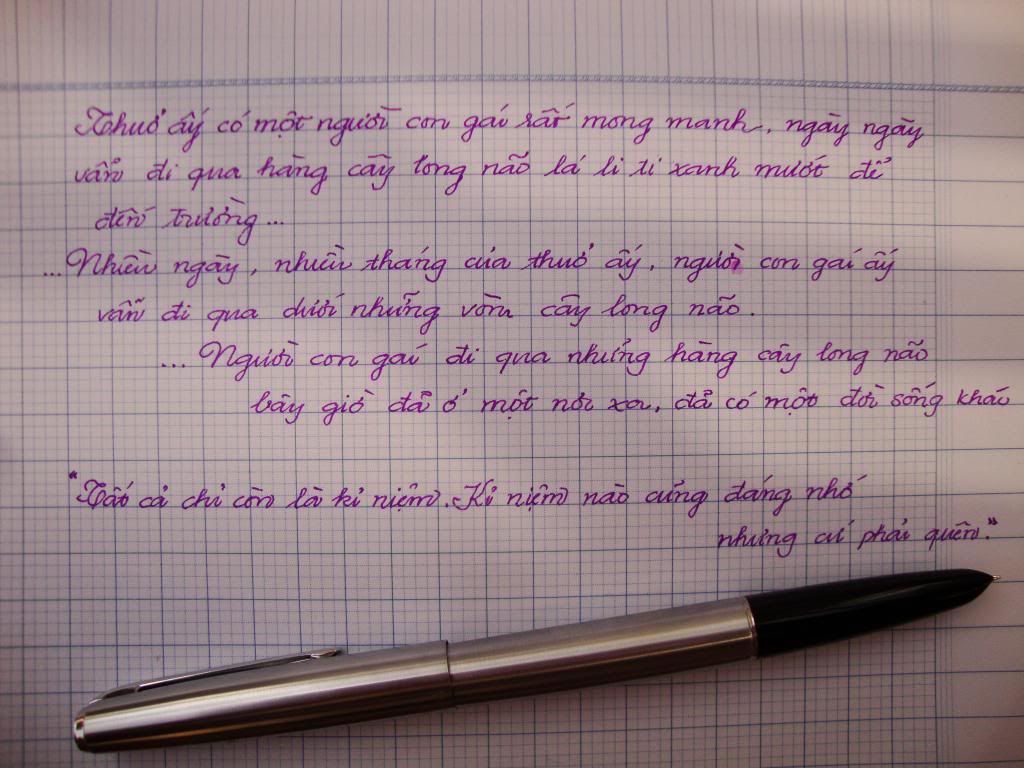 Thuở ấy có một người con gái rất mong manh, ngày ngày
vẫn đi qua hàng cây long não lá li ti xanh mướt để
đến trường...
...Nhiều ngày, nhiều tháng của thuở ấy, người con gái ấy
vẫn đi qua dưới những vòm cây long não.
... Người con gái đi qua những hàng cây long não
bây giờ đã ở một nơi xa, đã có một đời sống khác
"Tất cả chỉ còn là kỉ niệm. Kỉ niệm nào cũng đáng nhớ
nhưng cứ phải quên."